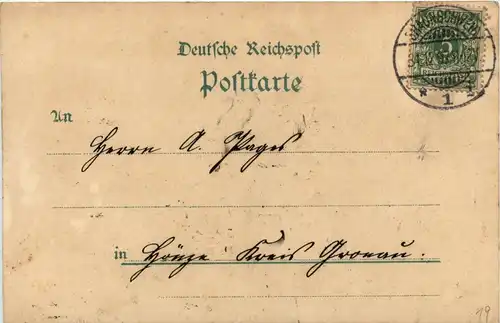 Deutsche Reichspost
Postkarte
An
Herrn A. Pages
in Hönze Kreis Gronau.
* 1
19